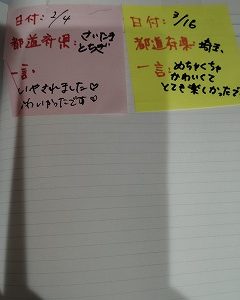 日付:2/4
都道府県:さいたま
とちぎ
一言、
いやされました♡
かわいかったです♡
日付:3/16
都道府県:埼玉、
一言:めちゃくちゃ
かわいくて
とても楽しかったで